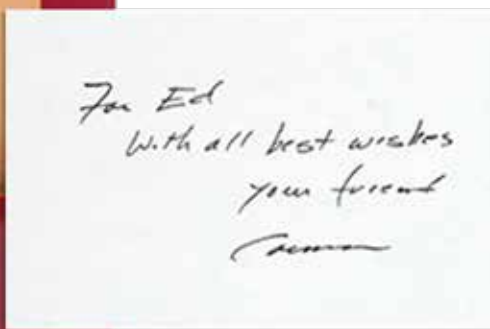 For Ed
With all best wishes
your friend